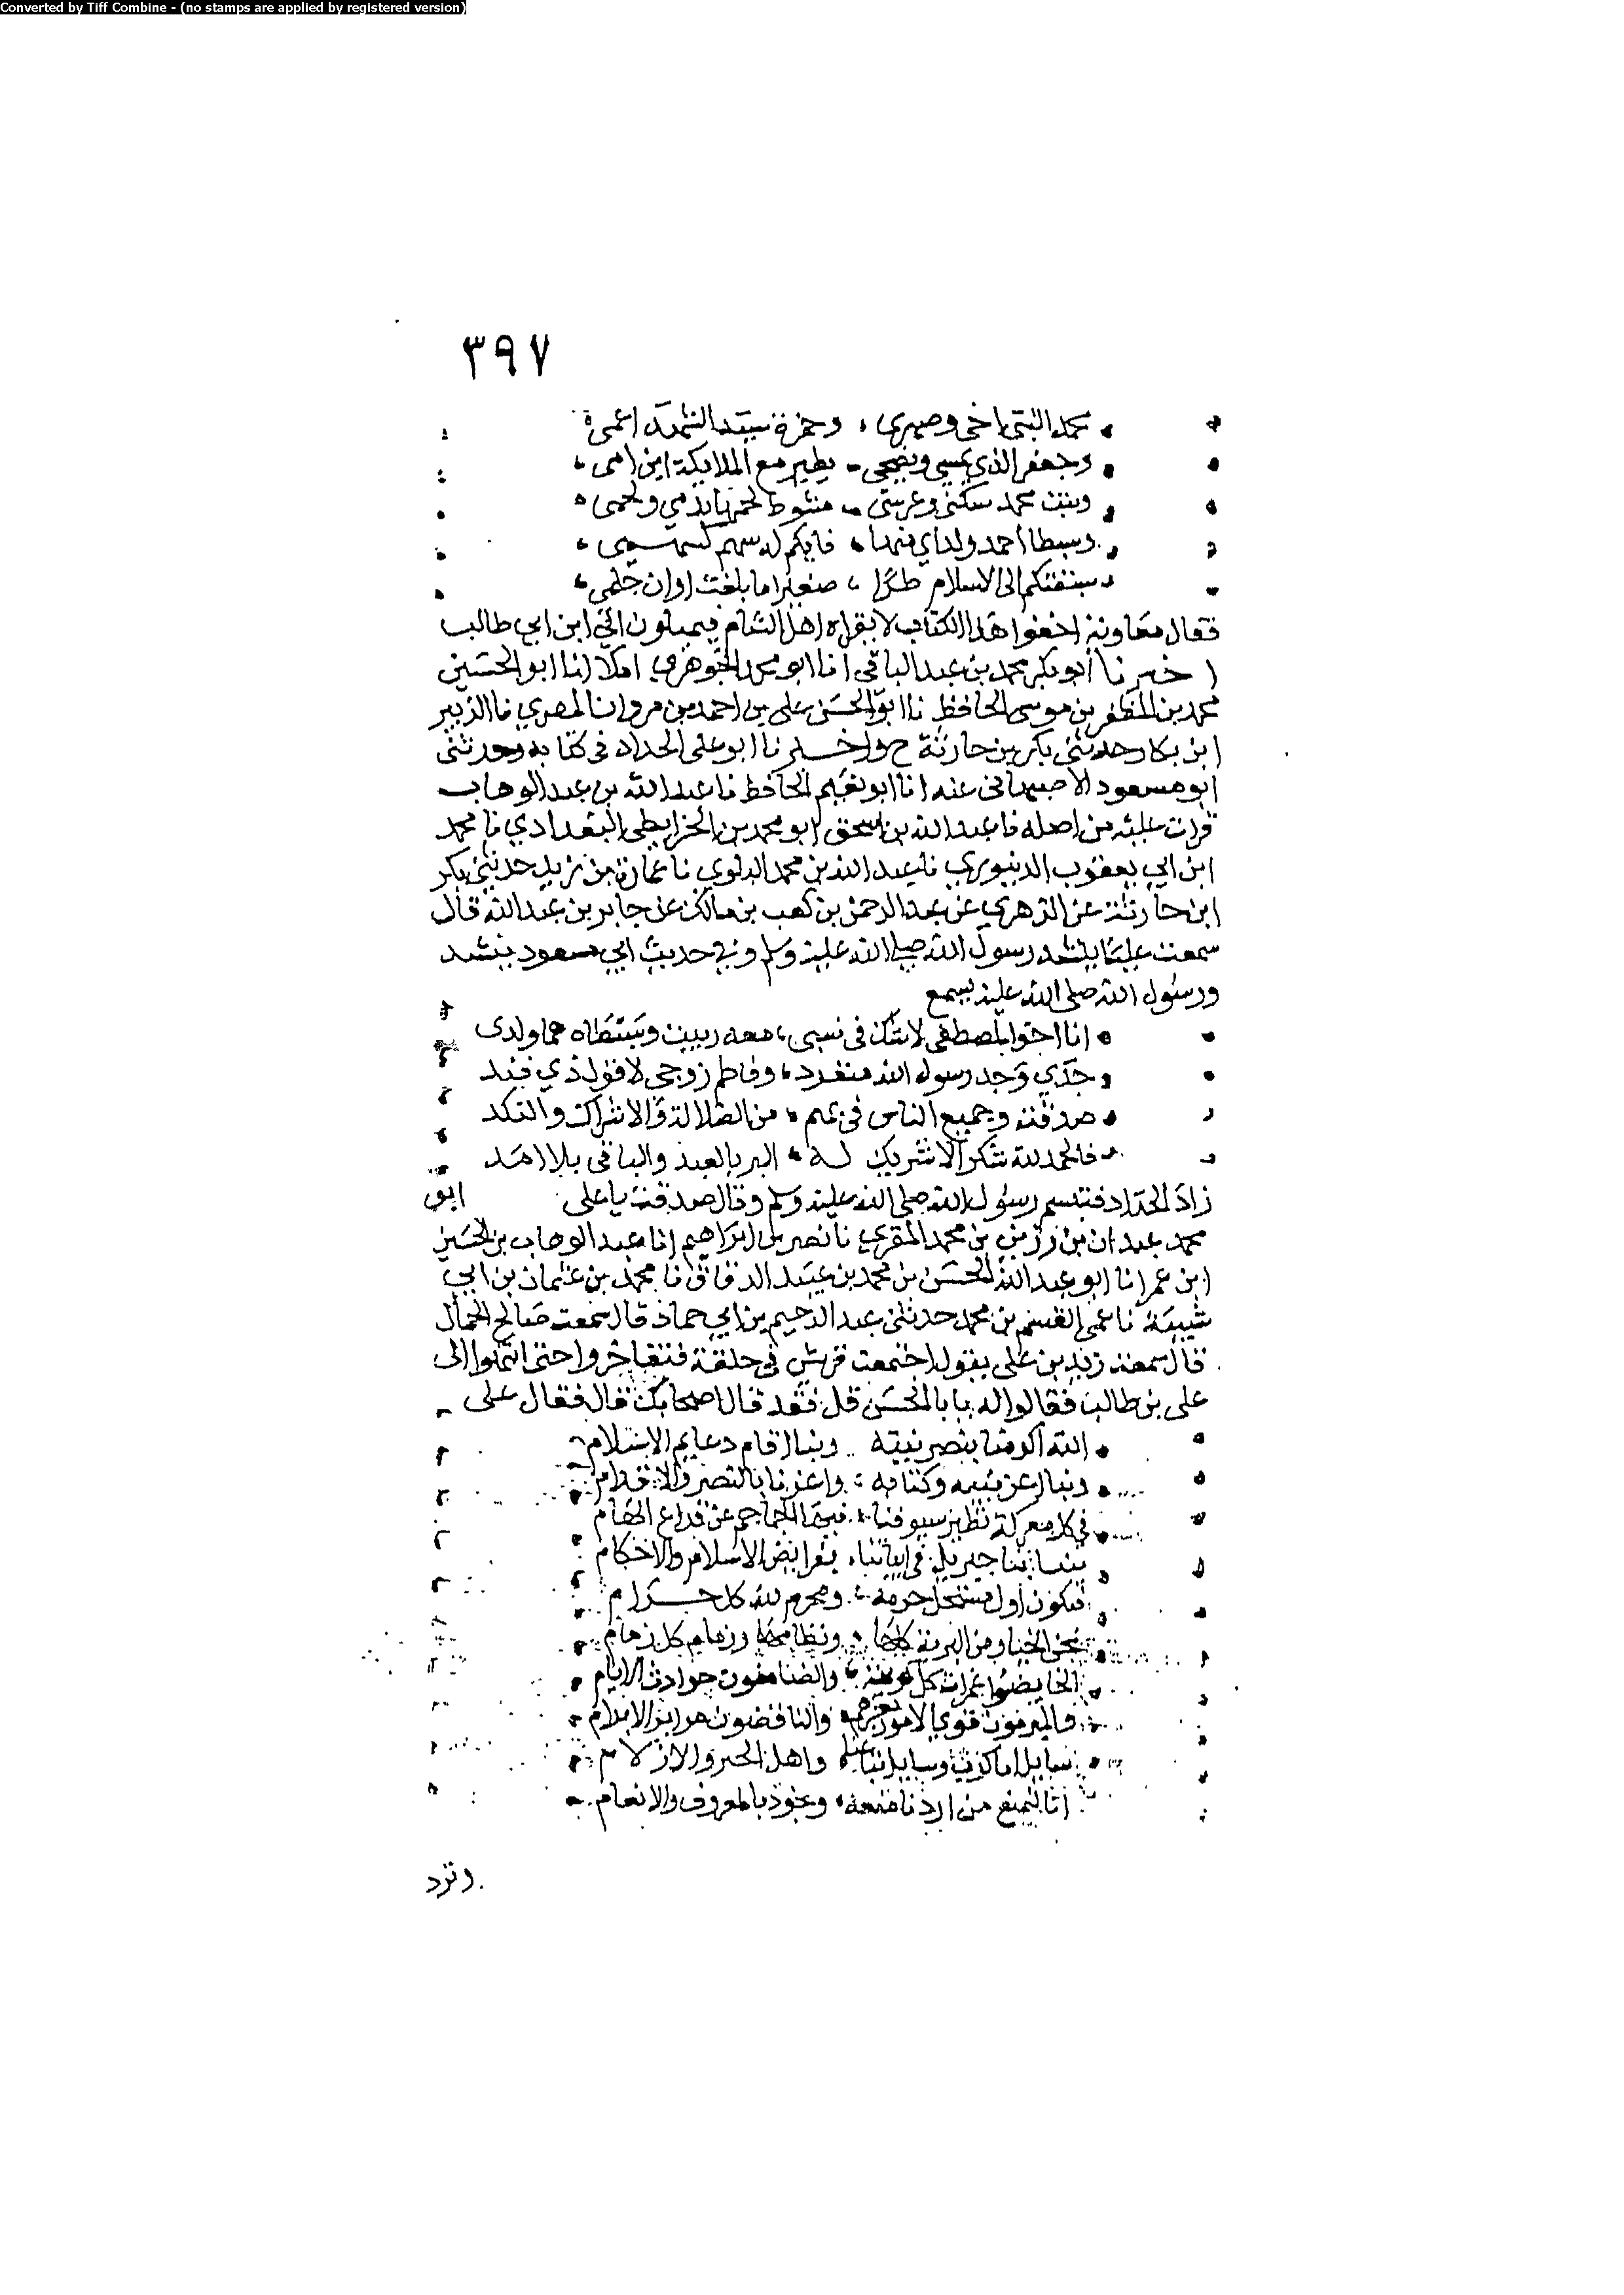 Converted by Tiff Combine - (no stamps are applied by registered version)
٣٩٧
محمد النبي اخي وصهري وحمزة سيد الشهداء عمي
وجعفر الذي يمسي ويضحي يطير مع الملايكة ابن امي
وبنت محمد سكني وعرسي منوط لحمها بدمي ولحمي
وسبطا احمد ولداي منها فايكم له سهم كسهمي
سبقتكم الى الاسلام طرا صغيرا ما بلغت اوان حلمي
فقال معاوية اخفوا هذا الكتاب لا يقراه اهل الشام فيميلون الى ابن ابي طالب
اخبرنا ابو بكر محمد بن عبد الباقي انا ابو محمد الجوهري املا انا ابو الحسين
محمد بن المظفر بن موسى الحافظ نا ابو الحسن علي بن احمد بن مروان المصري نا الزبير
ابن بكار حدثني بكر بن حارثة ح واخبرنا ابو علي الحداد في كتابه وحدثني
ابو مسعود الاصبهاني عنه انا ابو نعيم الحافظ نا عبد الله بن عبد الوهاب
قرات عليه من اصله نا عبد الله بن اسحق ابو محمد بن الخرايطي البغدادي نا محمد
ابن ابي يعقوب الدينوري نا عبد الله بن محمد البلوي نا عمارة بن زيد حدثني بكر
ابن حارثة عن الزهري عن عبد الرحمن بن كعب بن مالك عن جابر بن عبد الله قال
سمعت عليا ينشد رسول الله صلى الله عليه وسلم وفي حديث ابي مسعود ينشد
ورسول الله صلى الله عليه يسمع
انا اخو المصطفى لا شك في نسبي معه ربيت وسبطاه هما ولدى
جدي وجد رسول الله منفرد وفاطم زوجتي لا قول ذي فند
صدقته وجميع الناس في بهم من الضلالة والاشراك والنكد
فالحمد لله شكرا لا شريك له البر بالعبد والباقي بلا امد
زاد الحداد فتبسم رسول الله صلى الله عليه وسلم وقال صدقت يا علي ابو
محمد عبدان بن رزين بن محمد المقري نا نصر بن ابراهيم انا عبد الوهاب بن الحسين
ابن عمر انا ابو عبد الله الحسين بن محمد بن عبيد الدقاق نا محمد بن عثمان بن ابي
شيبة نا عمي القسم بن محمد حدثني عبد الرحيم بن ابي حماد قال سمعت صالح الحمال
قال سمعت زيد بن علي يقول اجتمعت قريش في حلقة فتفاخروا حتى انتهوا الى
علي بن طالب فقالوا له يا با الحسن قل فقد قال اصحابك قال فقال علي
الله اكرمنا بنصر نبيه وبنا اقام دعايم الاسلام
وبنا اعز نبيه وكتابه واعزنا بالنصر والاقدام
في كل معركة تطير سيوفنا فيها الجماجم عن فراخ الهام
ينتابنا جبريل في ابياتنا بفرايض الاسلام والاحكام
فنكون اول مستحل حله ومحرم لله كل حرام
نحن الخيار من البرية كلها ونظامها وزمام كل زمام
الخايضوا غمرات كل كريهة والضامنون حوادث الايام
والمبرمون قوى الامور بعزهم والناقضون مراير الابرام
انا لنمنع من اردنا منعه ونجود بالمعروف والانعام
وترد